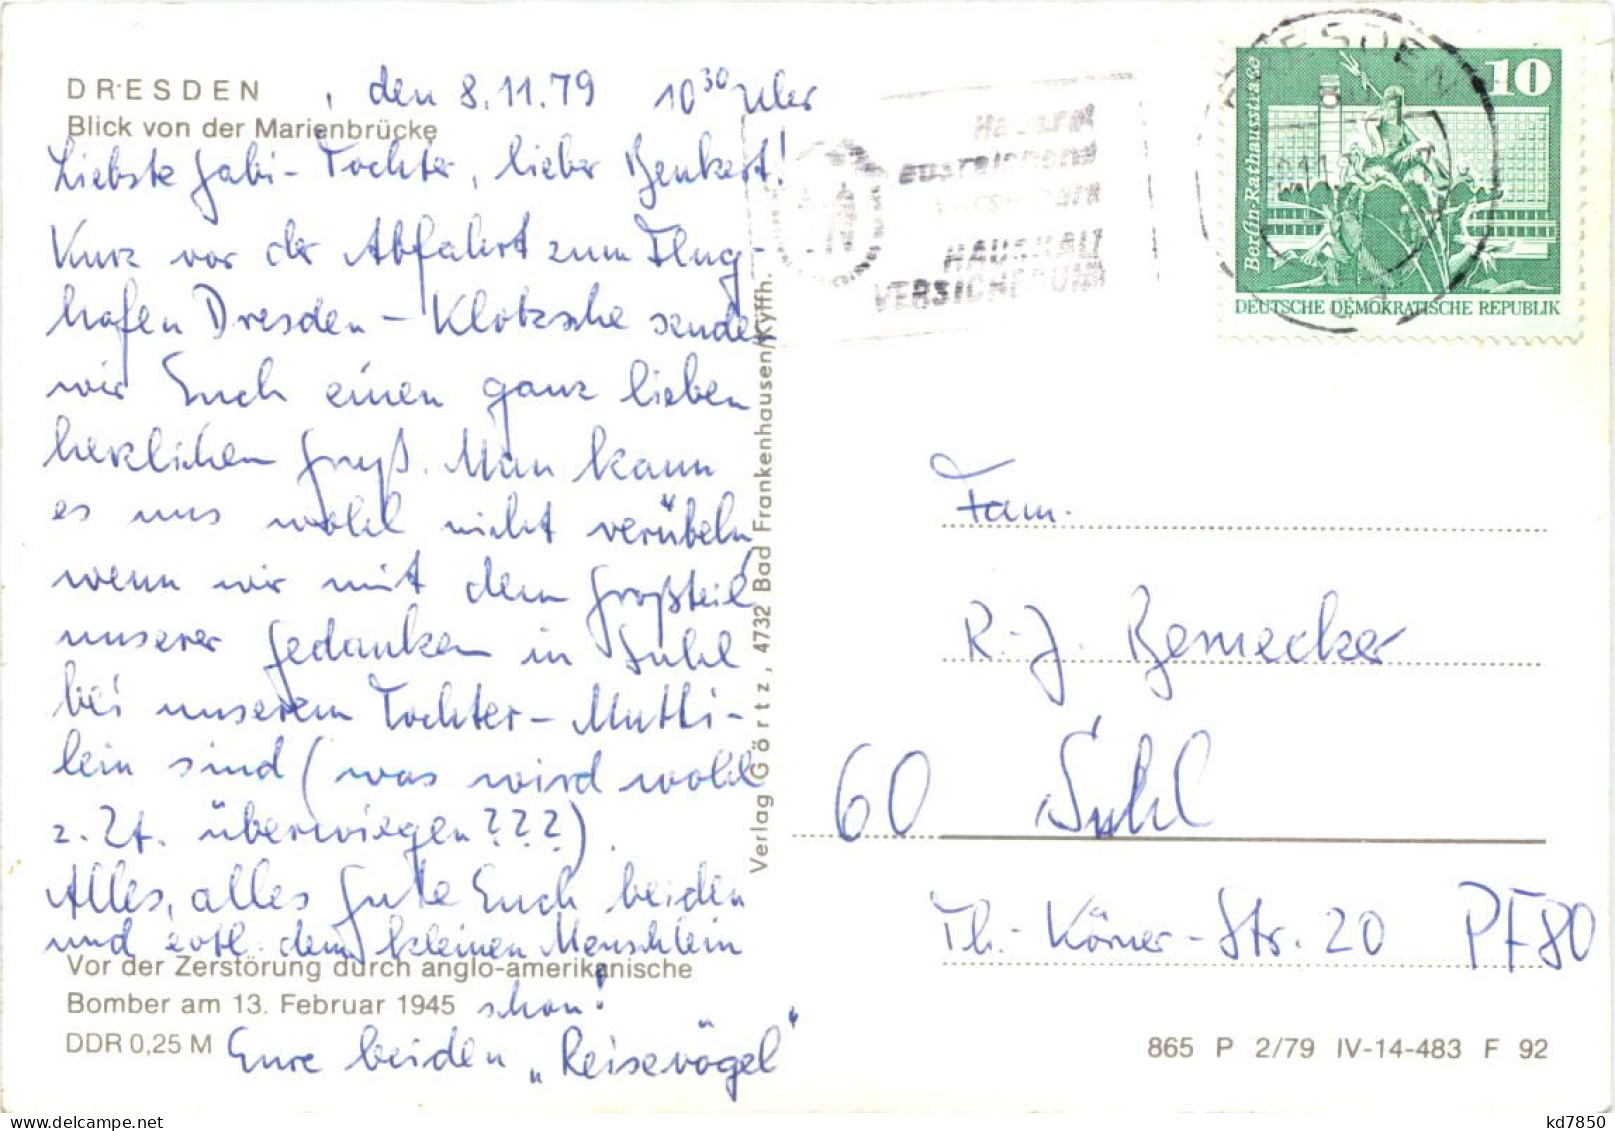 DRESDEN , den 8.11.79 10³⁰ Uhr
Blick von der Marienbrücke
Liebste Gabi-Tochter, lieber Benkert!
Kurz vor der Abfahrt zum Flug-
hafen Dresden – Klotzsche senden
wir Euch einen ganz lieben
herzlichen Gruß. Man kann
es uns wohl nicht verübeln,
wenn wir mit dem Großteil
unserer Gedanken in Suhl
bei unserem Tochter-Mutti-
lein sind (was wird wohl
z. Zt. überwiegen???).
Alles, alles Gute Euch beiden
und evtl. dem kleinen Menschlein
schon!
Eure beiden „Reisevögel"
Vor der Zerstörung durch anglo-amerikanische
Bomber am 13. Februar 1945
DDR 0,25 M
Verlag Görtz, 4732 Bad Frankenhausen/Kyffh.
Hausrat
ausreichend
HAUSHALT
VERSICHERUNG
DRESDEN
10
Berlin-Rathausstraße
DEUTSCHE DEMOKRATISCHE REPUBLIK
Fam.
R.-J. Bernecker
60 Suhl
Th.-Körner-Str. 20 PF 80
865 P 2/79 IV-14-483 F 92
kd7850